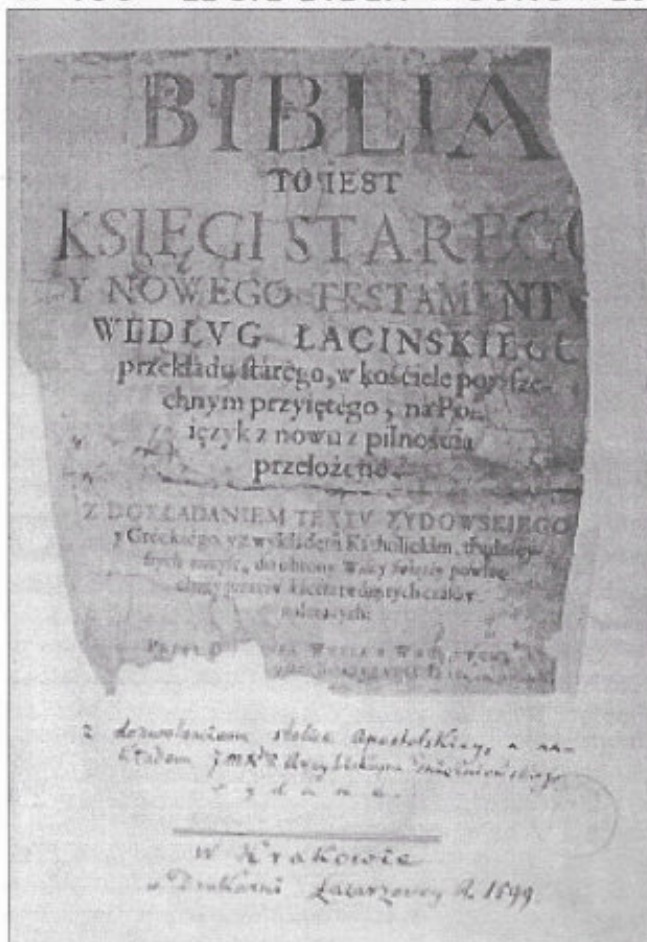 BIBLIA
TO IEST
KSIĘGI STAREGO
Y NOWEGO TESTAMENTV
WEDŁVG ŁACINSKIEGO
przekładu stárego, w kościele powsze-
chnym przyiętego, na Po
ięzyk z nowu z pilnością
przełożone.
Z DOKŁADANIEM TEXTV ZYDOWSKIEGO
y Greckiego, y z wykładem Katholickim, trudniey-
do obrony Wiary świętey powsze
tych czasów
należących:
z dozwoleniem stolice Apostolskiey, a na-
kładem
wydane.
W Krakowie
w Drukarni Łazarzowey R. 1599.